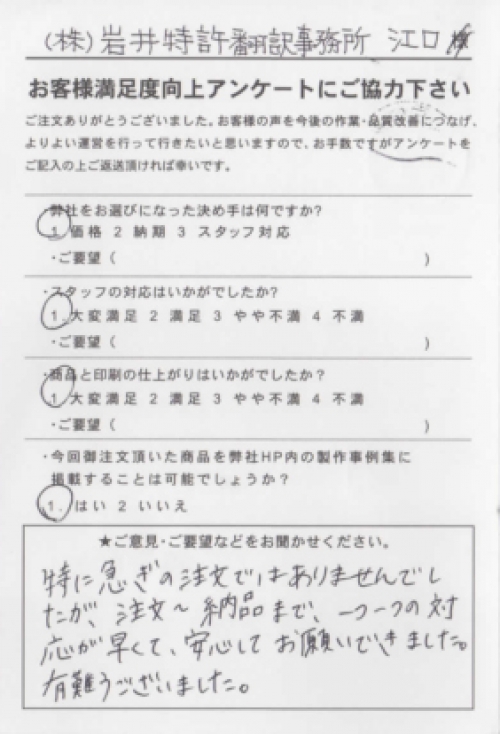 (株)岩井特許翻訳事務所 江口様
お客様満足度向上アンケートにご協力下さい
ご注文ありがとうございました。お客様の声を今後の作業・品質改善につなげ、
よりよい運営を行って行きたいと思いますので、お手数ですがアンケートを
ご記入の上ご返送頂ければ幸いです。
・弊社をお選びになった決め手は何ですか?
1.価格 2 納期 3 スタッフ対応
・ご要望( )
・スタッフの対応はいかがでしたか?
1.大変満足 2 満足 3 やや不満 4 不満
・ご要望( )
・商品と印刷の仕上がりはいかがでしたか?
1.大変満足 2 満足 3 やや不満 4 不満
・ご要望( )
・今回御注文頂いた商品を弊社HP内の製作事例集に
掲載することは可能でしょうか?
1. はい 2 いいえ
★ご意見・ご要望などをお聞かせください。
特に急ぎの注文ではありませんでし
たが、注文〜納品まで、一つ一つの対
応が早くて、安心してお願いできました。
有難うございました。